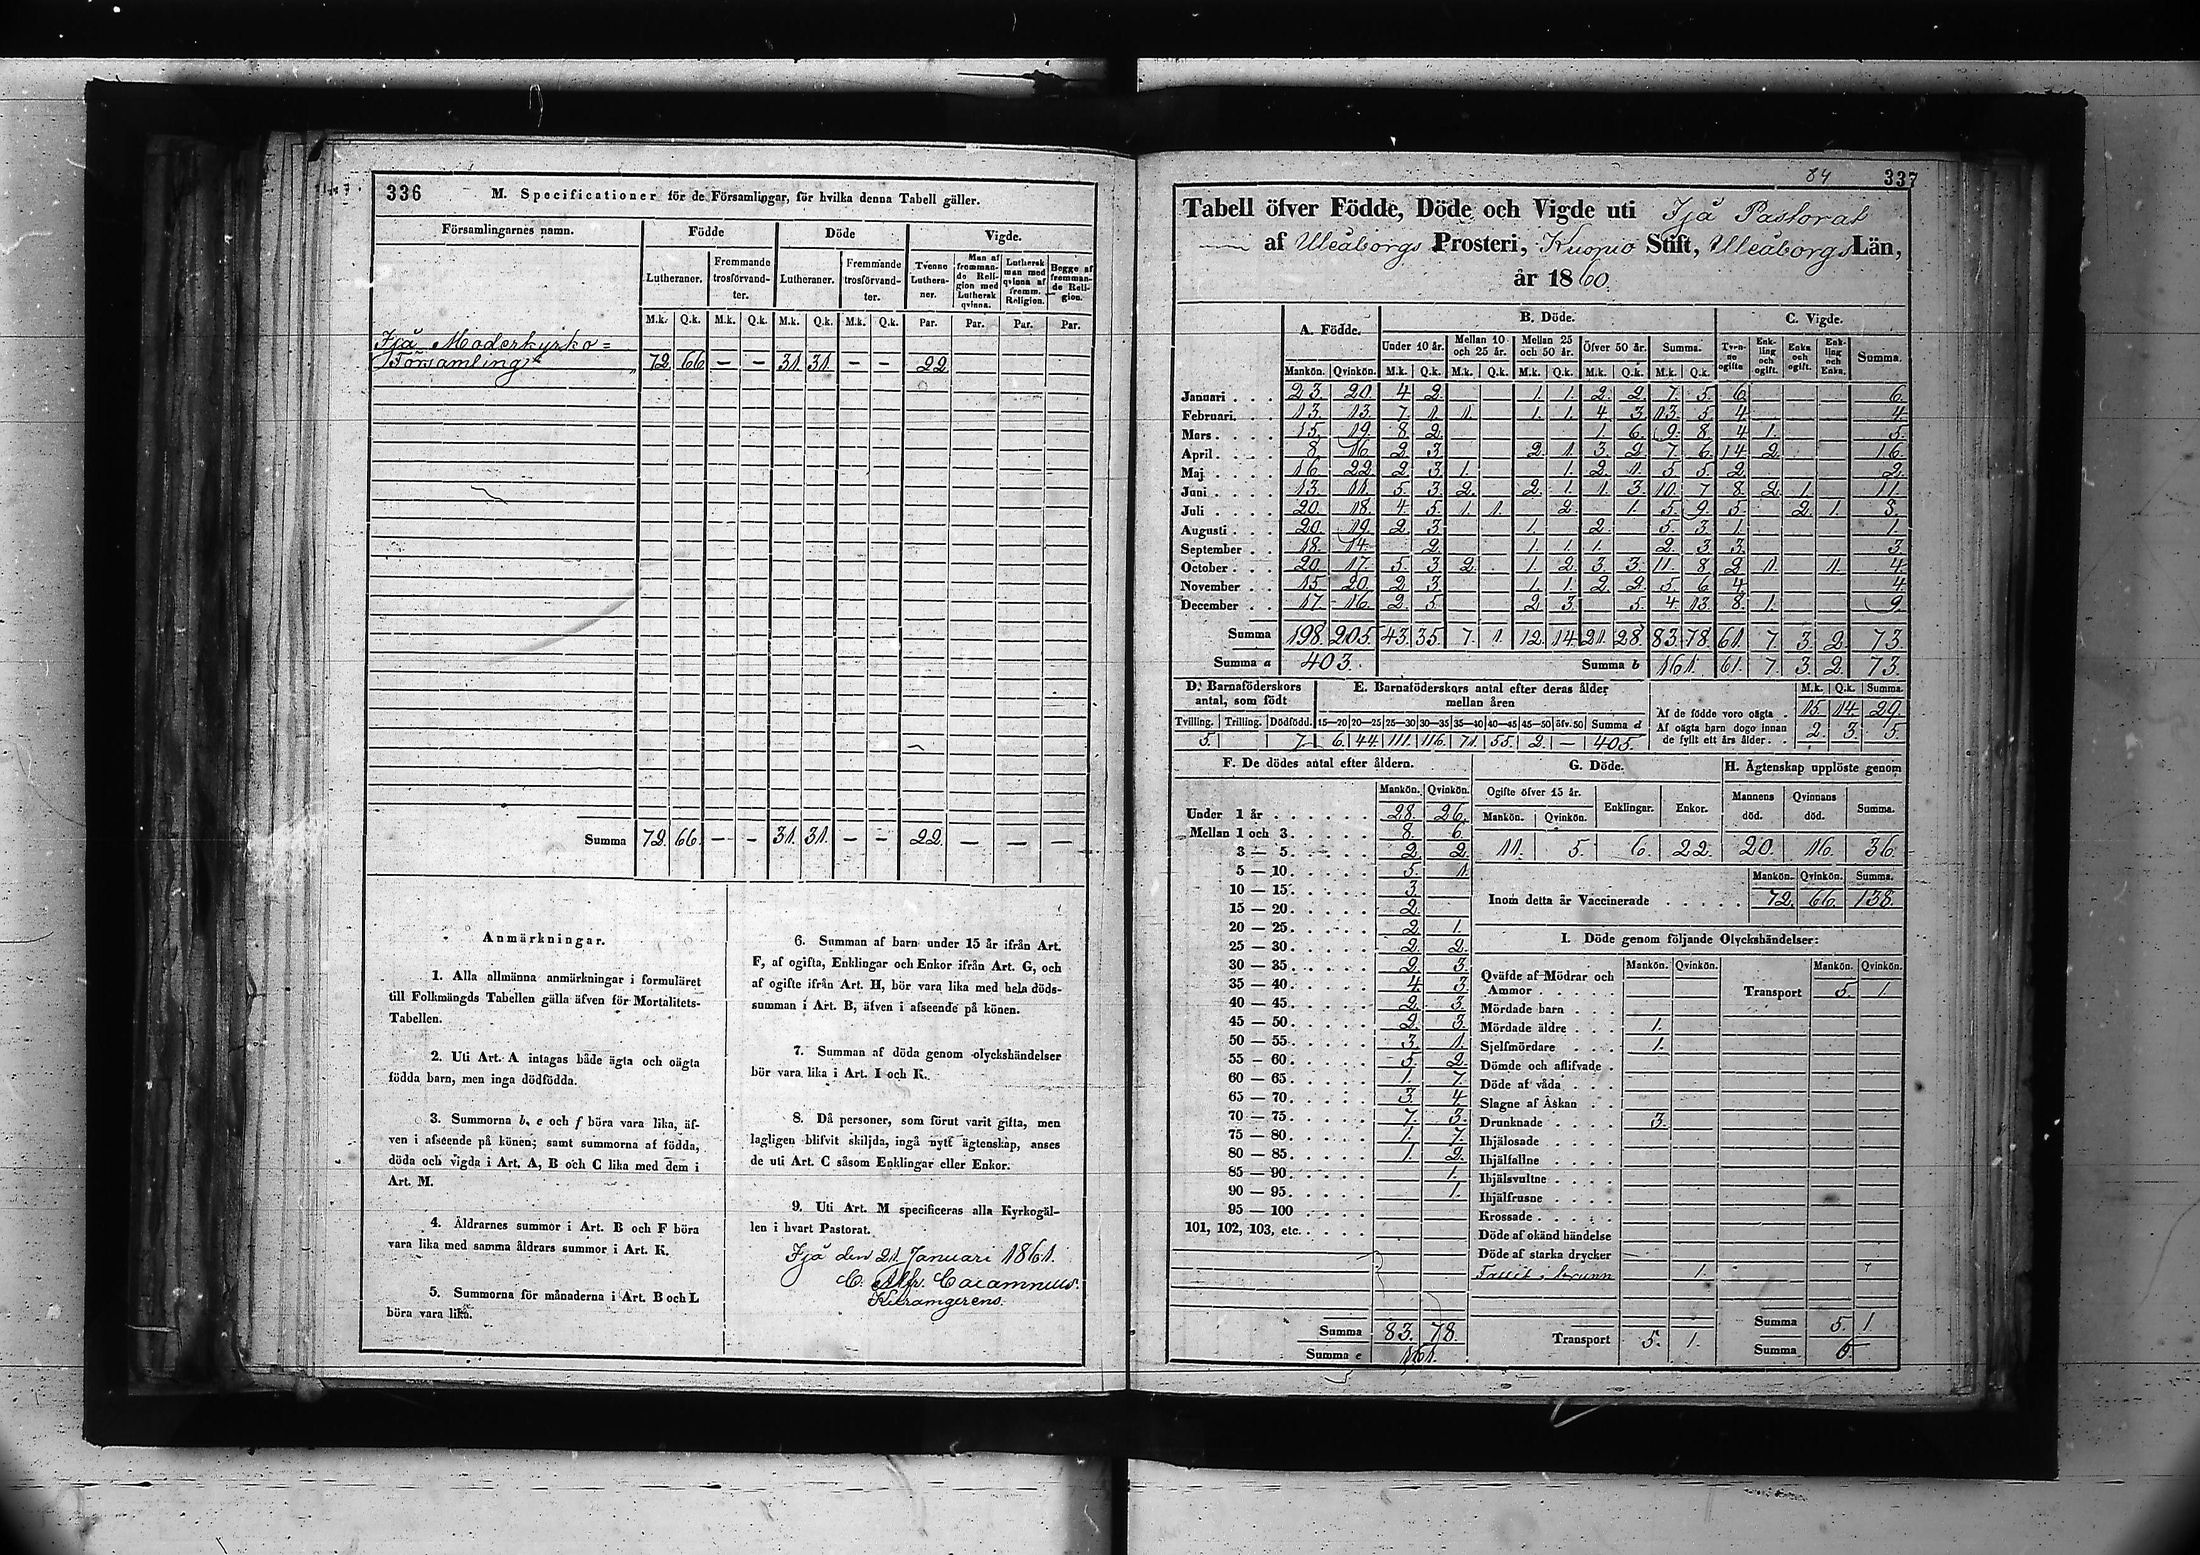 336 M. Specificationer för de Församlingar, för hvilka denna Tabell gäller.
Församlingarnes namn. Födde Döde Vigde.
Lutheraner. Fremmande trosförvandter. Lutheraner. Fremmande trosförvandter. Tvenne Lutheraner. Man af fremmande Religion med Luthersk qvinna. Luthersk man med qvinna af fremm. Religion. Begge af fremmande Religion.
M.k. Q.k. M.k. Q.k. M.k. Q.k. M.k. Q.k. Par. Par. Par. Par.
Ijå Moderkyrko=
Församling 72 66 — — 31. 31. — — 22
Summa 72. 66. — — 31. 31. — — 22. — — —
Anmärkningar.
1. Alla allmänna anmärkningar i formuläret
till Folkmängds Tabellen gälla äfven för Mortalitets-
Tabellen.
2. Uti Art. A intagas både ägta och oägta
födda barn, men inga dödfödda.
3. Summorna b, e och f böra vara lika, äf-
ven i afseende på könen; samt summorna af födda,
döda och vigda i Art. A, B och C lika med dem i
Art. M.
4. Åldrarnes summor i Art. B och F böra
vara lika med samma åldrars summor i Art. K.
5. Summorna för månaderna i Art. B och L
böra vara lika.
6. Summan af barn under 15 år ifrån Art.
F, af ogifta, Enklingar och Enkor ifrån Art. G, och
af ogifte ifrån Art. H, bör vara lika med hela döds-
summan i Art. B, äfven i afseende på könen.
7. Summan af döda genom olyckshändelser
bör vara lika i Art. I och K.
8. Då personer, som förut varit gifta, men
lagligen blifvit skiljda, ingå nytt ägtenskap, anses
de uti Art. C såsom Enklingar eller Enkor.
9. Uti Art. M specificeras alla Kyrkogäl-
len i hvart Pastorat.
Ijå den 21 Januari 1861.
C. Alfr. Caiamnus.
84 337
Tabell öfver Födde, Döde och Vigde uti Ijå Pastorat
af Uleåborgs Prosteri, Kuopio Stift, Uleåborgs Län,
år 1860.
A. Födde. B. Döde. C. Vigde.
Under 10 år. Mellan 10 och 25 år. Mellan 25 och 50 år. Öfver 50 år. Summa. Tvenne ogifta Enkling och ogift. Enka och ogift. Enkling och Enka. Summa.
Mankön. Qvinkön. M.k. Q.k. M.k. Q.k. M.k. Q.k. M.k. Q.k. M.k. Q.k.
Januari . . . 23. 20. 4 2. 1. 1. 2 2 7. 5. 6. 6.
Februari. . . . 13 13. 7. 1. 1. 1. 1. 4 3 13. 5 4. 4.
Mars . . . . 15. 19. 8. 2. 1. 6. 9. 8. 4 1. 5.
April . . . . 8 16 2 3. 2. 1. 3. 2 7 6. 14 2. 16.
Maj . . . . 16. 22. 2. 3. 1. 1. 2. 1. 5 5 2. 2.
Juni . . . . 13. 11. 5. 3. 2. 2. 1. 1. 3. 10. 7 8. 2 1. 11.
Juli . . . . 20. 18. 4. 5. 1. 1. 2. 1. 5 9. 5. 2. 1. 8.
Augusti . . . 20 19. 2. 3. 1. 2. 5. 3 1. 1.
September . . 18. 14. 2. 1. 1. 1. 2. 3 3. 3
October . . . 20. 17. 5. 3 2. 1. 2. 3 3. 11. 8 2 1. 1. 4.
November . . 15 20. 2 3. 1. 1. 2 2. 5. 6 4. 4.
December . . 17 16. 2 5. 2 3. 5. 4. 13. 8. 1. 9.
Summa 198. 205. 43. 35. 7. 1 12. 14. 21. 28. 83. 78. 61. 7. 3. 2. 73.
Summa a 403. Summa b 161. 61. 7 3. 2. 73.
D. Barnaföderskors antal, som född E. Barnaföderskors antal efter deras ålder mellan åren M.k. Q.k. Summa.
Tvilling. Trilling. Dödfödd. 15—20 20—25 25—30 30—35 35—40 40—45 45—50 öfv.50 Summa d
5. 7. 6. 44. 111. 116. 71. 55. 2. — 405.
Af de födde voro oägta . 15. 14. 29.
Af oägta barn dogo innan
de fyllt ett års ålder . . 2. 3. 5.
F. De dödes antal efter åldern.
Mankön. Qvinkön.
Under 1 år . . . . . . 28. 26.
Mellan 1 och 3. . . . . 8. 6.
3 — 5. . . . . 2. 2.
5 — 10. . . . . 5. 1.
10 — 15. . . . . 3.
15 — 20. . . . . 2.
20 — 25. . . . . 2. 1.
25 — 30. . . . . 2. 2.
30 — 35. . . . . 2. 3.
35 — 40. . . . . 4. 3.
40 — 45. . . . . 2. 3.
45 — 50. . . . . 2. 3.
50 — 55. . . . . 3. 1.
55 — 60. . . . . 5. 2.
60 — 65. . . . . 1. 7.
65 — 70. . . . . 3. 4.
70 — 75 . . . . . 7. 3.
75 — 80. . . . . 1. 7.
80 — 85. . . . . 1. 2.
85 — 90. . . . . 1.
90 — 95. . . . . 1.
95 — 100 . . . .
101, 102, 103, etc. . . . .
Summa 83. 78.
Summa e 161.
G. Döde. H. Ägtenskap upplöste genom
Ogifte öfver 15 år. Enklingar. Enkor. Mannens död. Qvinnans död. Summa.
Mankön. Qvinkön.
11. 5. 6. 22. 20. 16. 36.
Mankön. Qvinkön. Summa.
Inom detta år Vaccinerade . . . . . 72. 66. 138.
I. Döde genom följande Olyckshändelser:
Mankön. Qvinkön. Mankön. Qvinkön.
Qväfde af Mödrar och
Ammor . . . . Transport 5. 1.
Mördade barn . . .
Mördade äldre . . . 1.
Sjelfmördare . . . 1.
Dömde och aflifvade .
Döde af våda . . .
Slagne af Åskan . .
Drunknade . . . . 3.
Ihjälosade . . . .
Ihjälfallne . . . .
Ihjälsvultne . . . .
Ihjälfrusne . . . .
Krossade . . . . .
Döde af okänd händelse
Döde af starka drycker
Fallit i brunn 1.
Summa 5. 1.
Transport 5. 1. Summa 6.